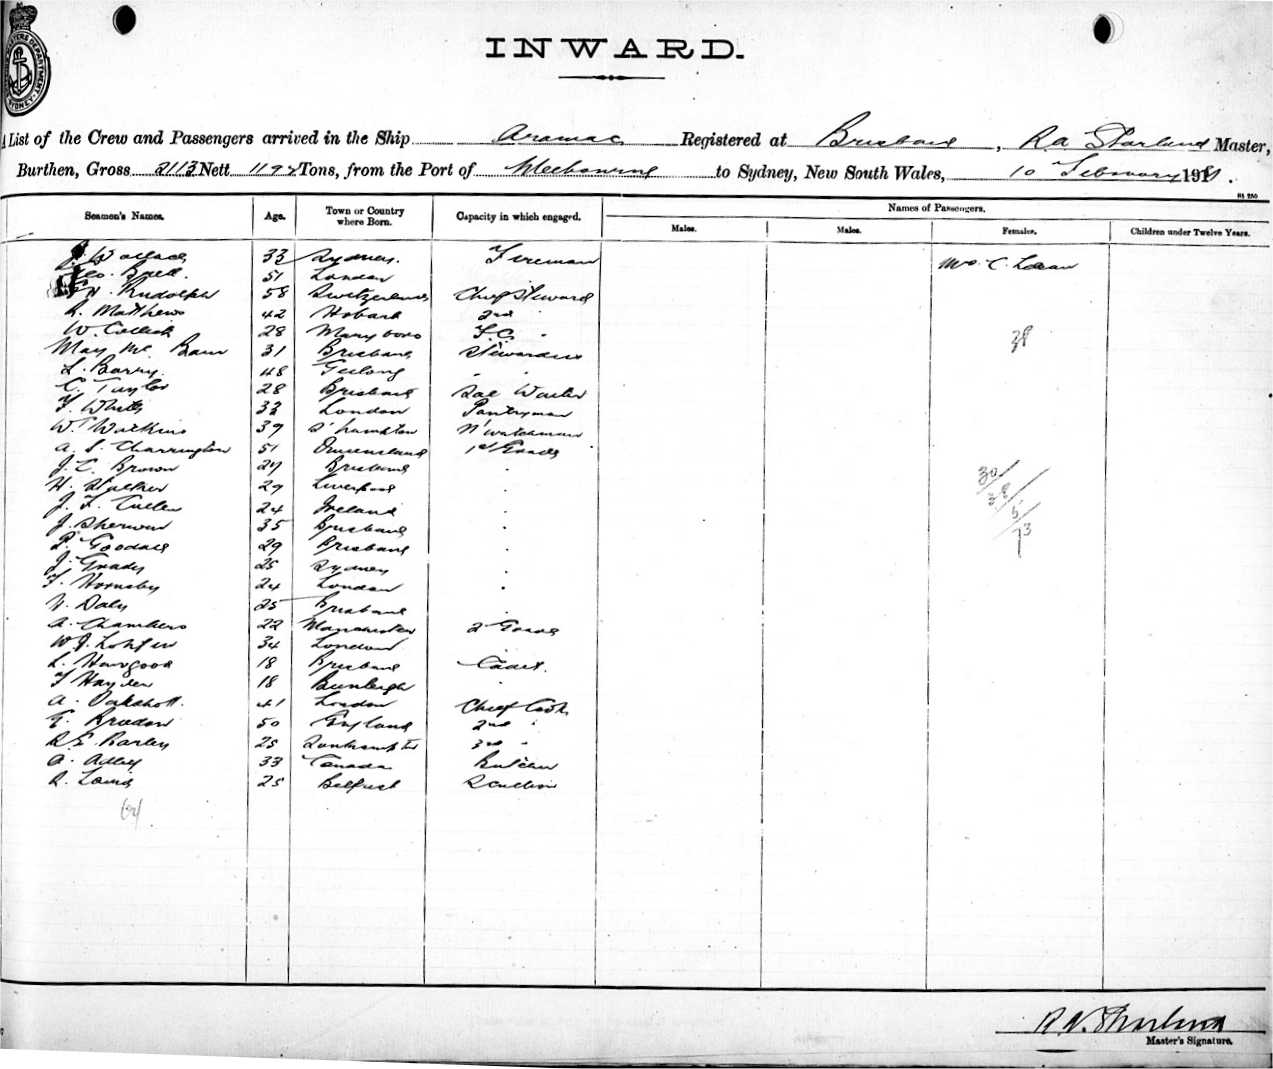 INWARD.
A List of the Crew and Passengers arrived in the Ship Aramac Registered at Brisbane, R A Starland Master,
Burthen, Gross 2113 Nett 1192 Tons, from the Port of Melbourne to Sydney, New South Wales, 10 February 1911.
Seamen's Names. Age. Town or Country where Born. Capacity in which engaged. Names of Passengers.
Males. Males. Females. Children under Twelve Years.
J Wallace 33 Sydney. Fireman Mrs C. Logan
Geo. Buell 51 London
Rudolph 58 Switzerland Chief Steward
R. Matthews 42 Hobart 2nd "
W. 28 Maryboro F.C. "
May Mc Bain 31 Brisbane Stewardess 38
L. Barry 48 Geelong "
C. Taylor 28 Brisbane Sal Waiter
F. White 33 London Pantryman
W. Watkins 39 S'hampton N'watchman
A. S. Charrington 51 Queensland 1st Grade
J. C. Brown 27 Brisbane "
H. Walker 29 Liverpool " 30
J. F. Cullen 24 Ireland " 38
J. Sherwin 35 Brisbane " 5
P. Goodall 29 Brisbane " 73
J. Grady 25 Sydney "
F. Hornsby 24 London "
N. Daly 25 Brisbane "
A. Chambers 22 Manchester 2 Grade
W J. 34 London
L. Hawgood 18 Brisbane Cadet.
F Hayden 18 Burleigh
A. Oakshott. 41 London Chief Cook
E. Bredon 50 England 2nd "
R E Barley 25 Southampton 3rd "
A. Adley 33 Canada Butcher
R. Laing 25 Belfast Scullion
Master's Signature.